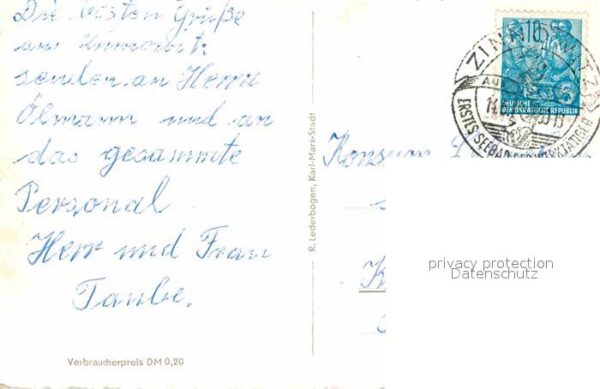 Die besten Grüße
aus Zinnowitz
senden an Herrn
Ölmann und an
das gesammte
Personal
Herr und Frau
Taube.
Verbraucherpreis DM 0,20
R. Lederbogen, Karl-Marx-Stadt
10
5
DEUTSCHE
DEMOKRATISCHE REPUBLIK
ZINNOWITZ
ERSTES SEEBAD DER WERKTÄTIGEN
Konsum
privacy protection
Datenschutz